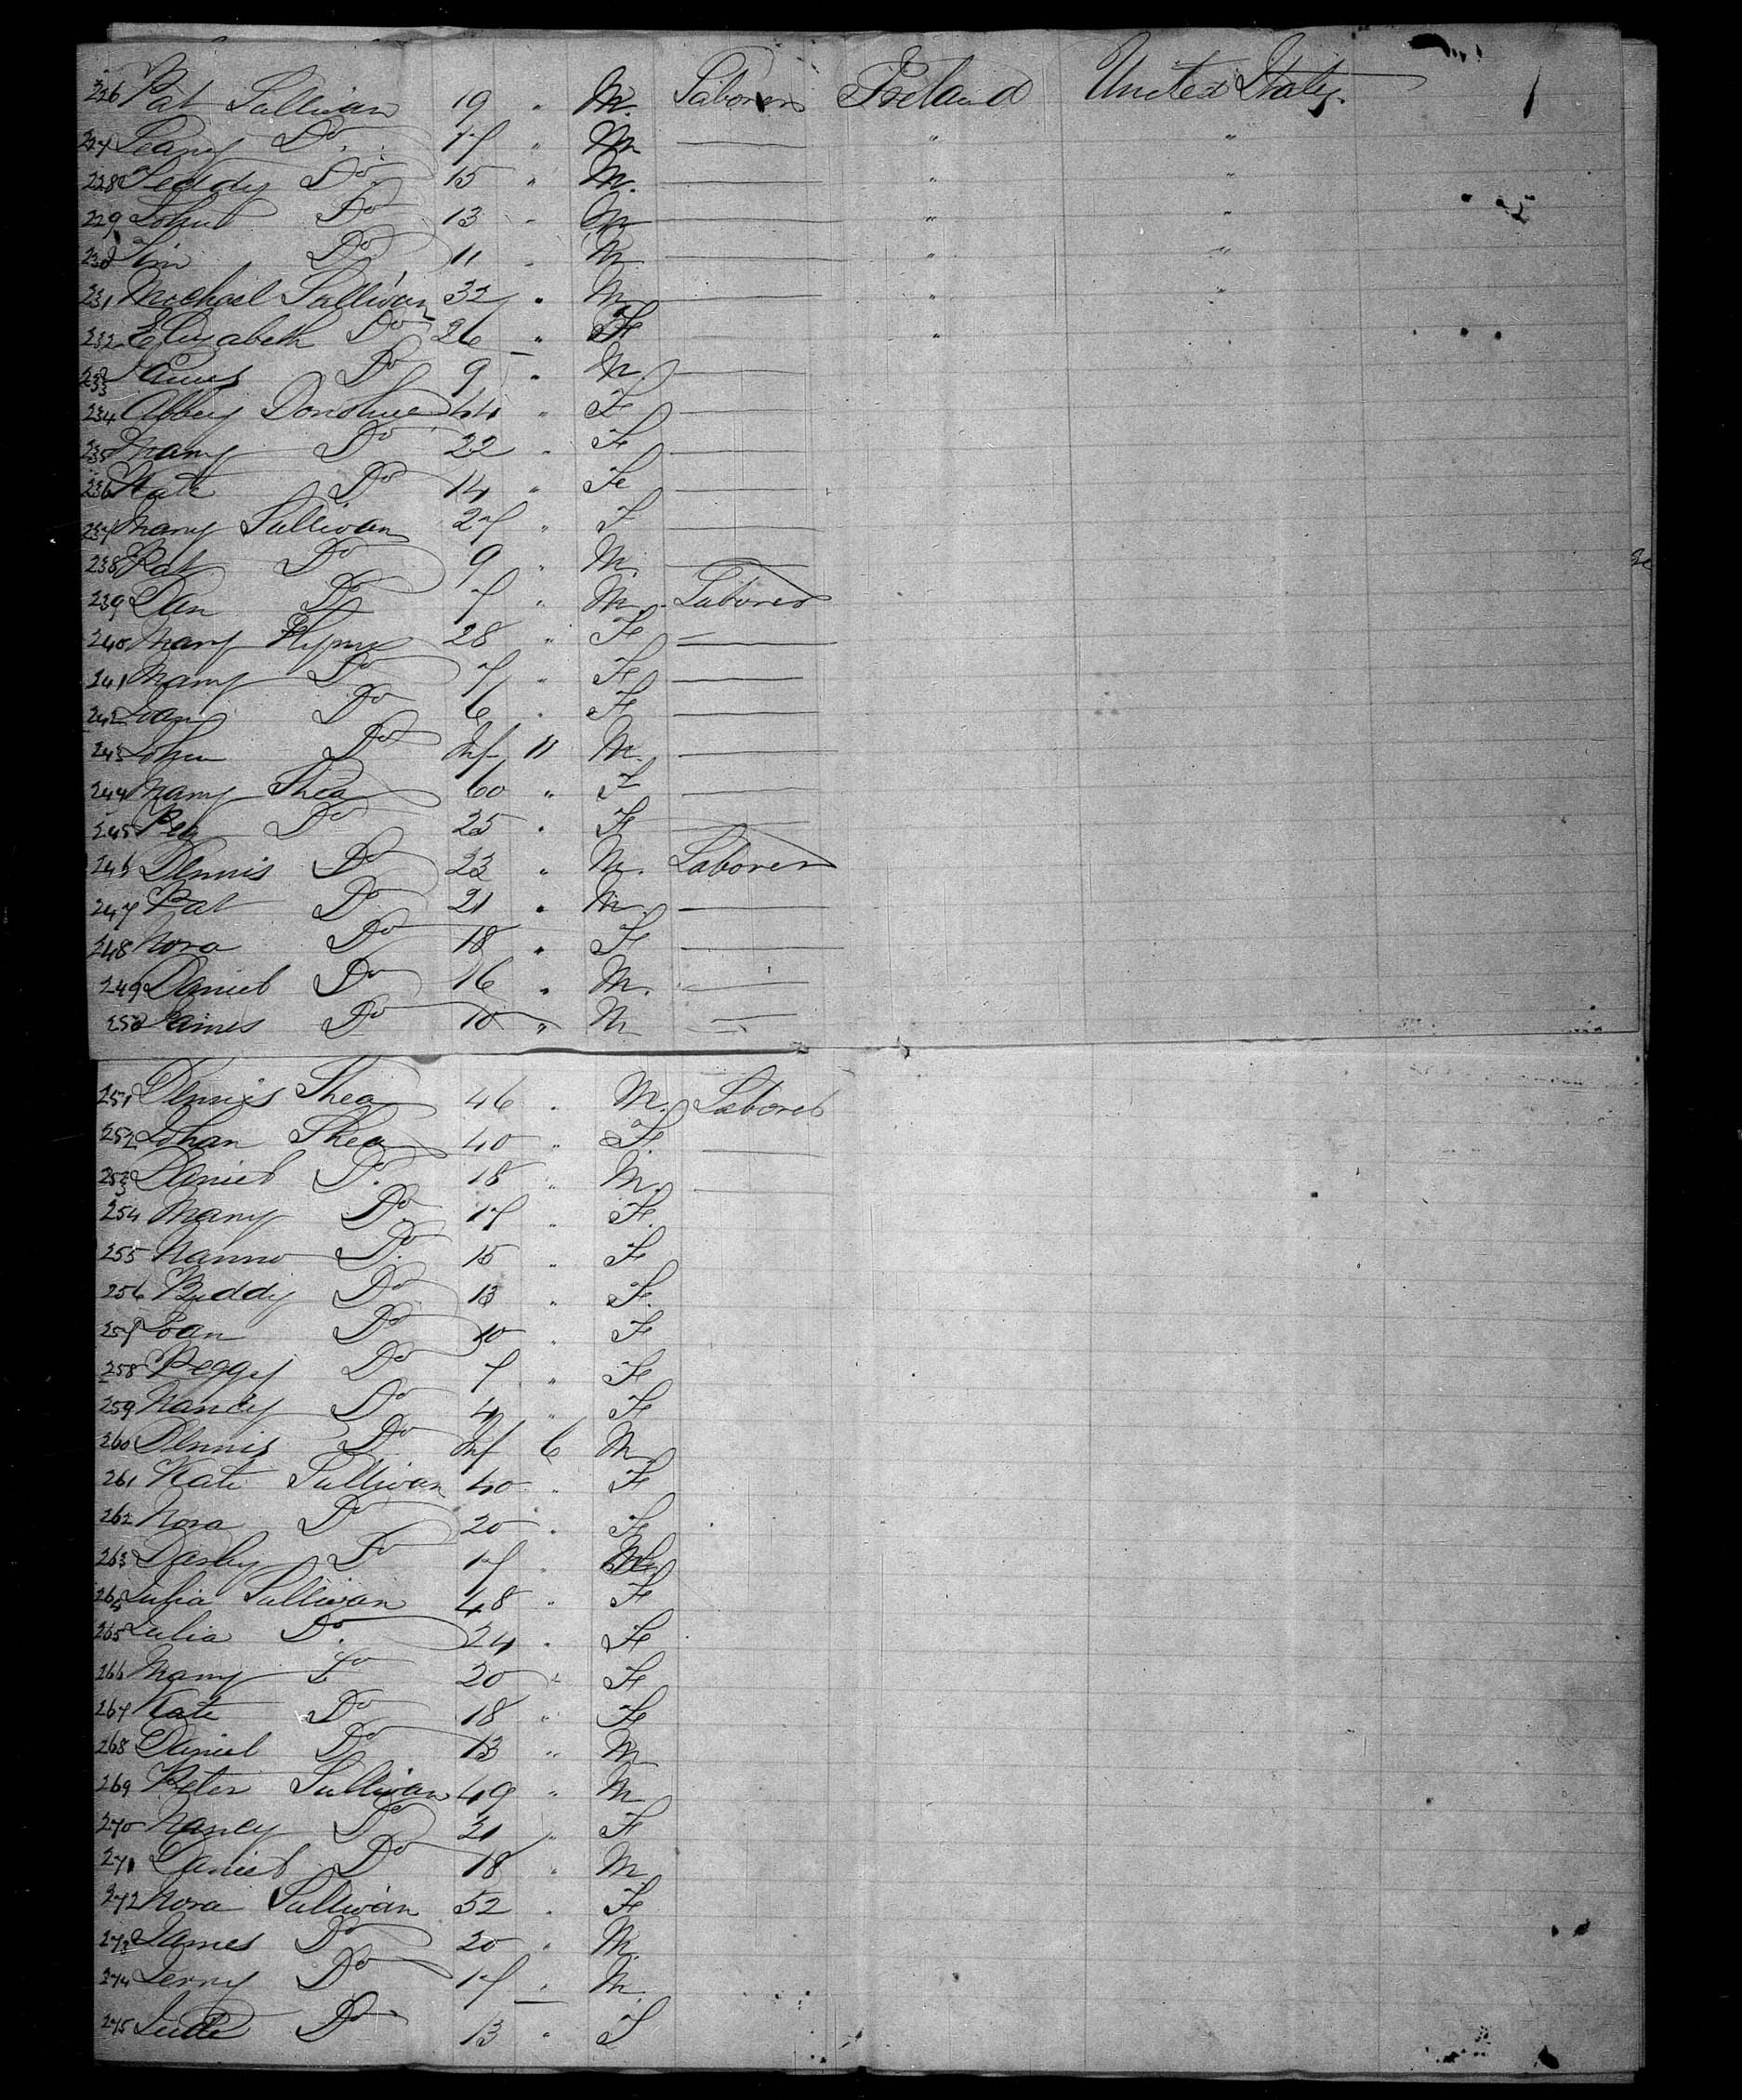 226 Pat Sullivan 19 " M. Laborer Ireland United States
227 Do. 17 " M " "
228 Teddy Do 15 " M. " "
229 John Do 13 " M " "
230 Tim Do 11 " M " "
231 Michael Sullivan 32 " M " "
232 Elizabeth Do 26 " F "
233 James Do 9 " M
234 Abbey Donohue 44 " F
235 Mary Do 22 " F
236 Kate Do 14 " Fe
237 Mary Sullivan 27 " F
238 Pat Do 9 " M
239 Dan Do 7 " M Laborer
240 Mary 28 " F
241 Mary Do 7 " F
242 Joan Do 6 " F
243 John Do Inf 11 M.
244 Mary Shea 60 " F
245 Peg Do 25 " F
246 Dennis Do 23 " M. Laborer
247 Pat Do 21 " M
248 Nora Do 18 " F
249 Daniel Do 16 " M.
250 James Do 10 " M
251 Dennis Shea 46 " M. Laborer
252 Johan Shea 40 " F
253 Daniel Do. 18 " M.
254 Mary Do 17 " F.
255 Nanno Do. 15 " F
256 Biddy Do 13 " F.
257 Joan Do 10 " F
258 Peggy Do 7 " F
259 Nancy Do 4 " F
260 Dennis Do Inf 6 M
261 Kate Sullivan 40 " F
262 Nora Do 20 " F
263 Darby Do 17 " M
264 Julia Sullivan 48 " F
265 Julia Do. 24 " F
266 Mary Do 20 " F
267 Kate Do 18 " F
268 Daniel Do 13 " M
269 Peter Sullivan 49 " M
270 Nancy Do 21 " F
271 Daniel Do 18 " M
272 Nora Sullivan 52 " F
273 James Do 20 " M.
274 Jerry Do 17 " M.
275 Do 13 " F